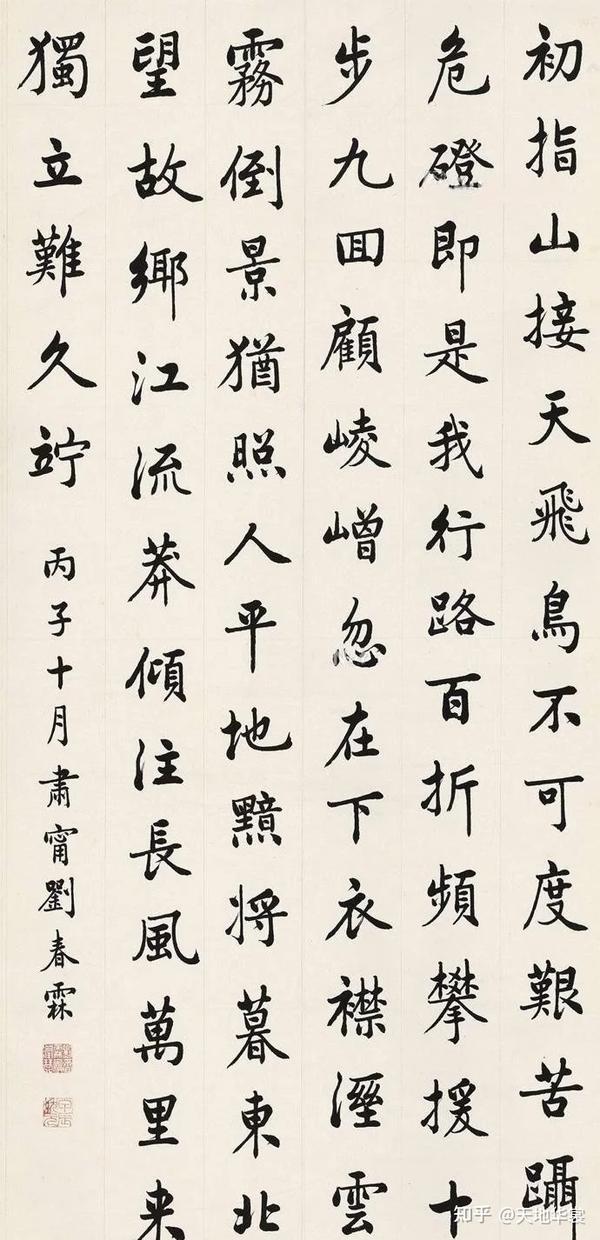 初指山接天飛鳥不可度艱苦躡
危磴即是我行路百折頻攀援十
步九囬顧崚嶒忽在下衣襟溼雲
霧倒景猶照人平地黯將暮東北
望故鄉江流莽傾注長風萬里来
獨立難久竚
丙子十月肅甯劉春霖
知乎 @天地华裳